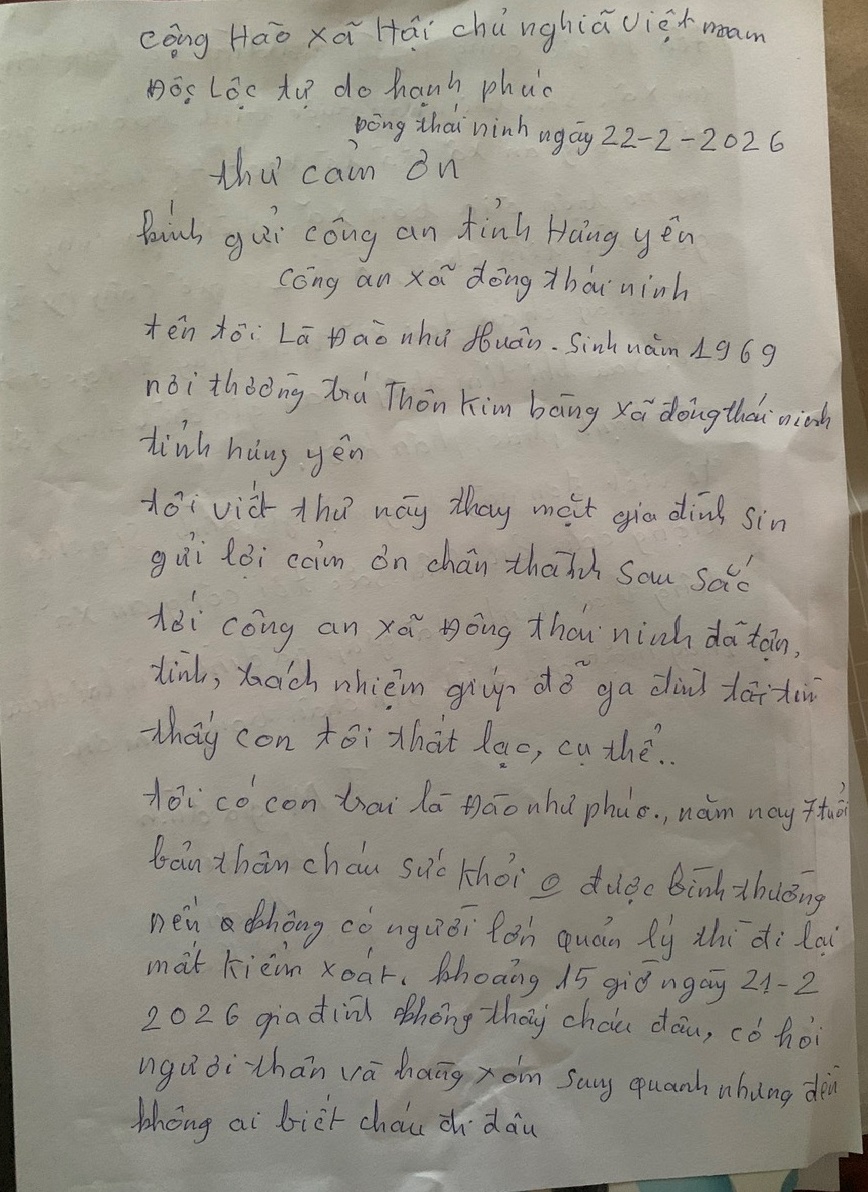 cộng Hào xã Hậi chủ nghĩã việt nam
Độc Lộc tự do hạnh phúc
Đông thái ninh ngày 22-2-2026
thư cảm ơn
kính gửi công an tỉnh Hưng yên
công an xã đông thái ninh
tên tôi Là Đào như Huân. Sinh năm 1969
nơi thường trú Thôn Kim bàng xã đông thái ninh
tỉnh hưng yên
tôi viết thư này thay mặt gia đình sin
gửi lời cảm ơn chân thành sau sắc
tới công an xã Đông thái ninh đã tận,
tình, trách nhiệm giúp đỡ ga đình tôi tìm
thấy con tôi thất lạc, cụ thể..
tôi có con trai là Đào như phúc., năm nay 7 tuổi
bản thân cháu sức khỏi o được bình thường
nếu không có người lớn quản lý thì đi lại
mất kiểm xoát. khoảng 15 giờ ngày 21-2
2026 gia đình không thấy cháu đâu, có hỏi
người thân và hàng xóm sung quanh nhưng đều
không ai biết cháu đi đâu